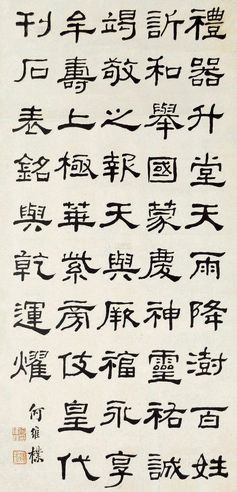 禮器升堂天雨降澍百姓
訢和舉國蒙慶神靈祐誠
竭敬之報天與厥福永享
牟壽上極華紫旁伎皇代
刊石表銘與乾運燿
何維樸